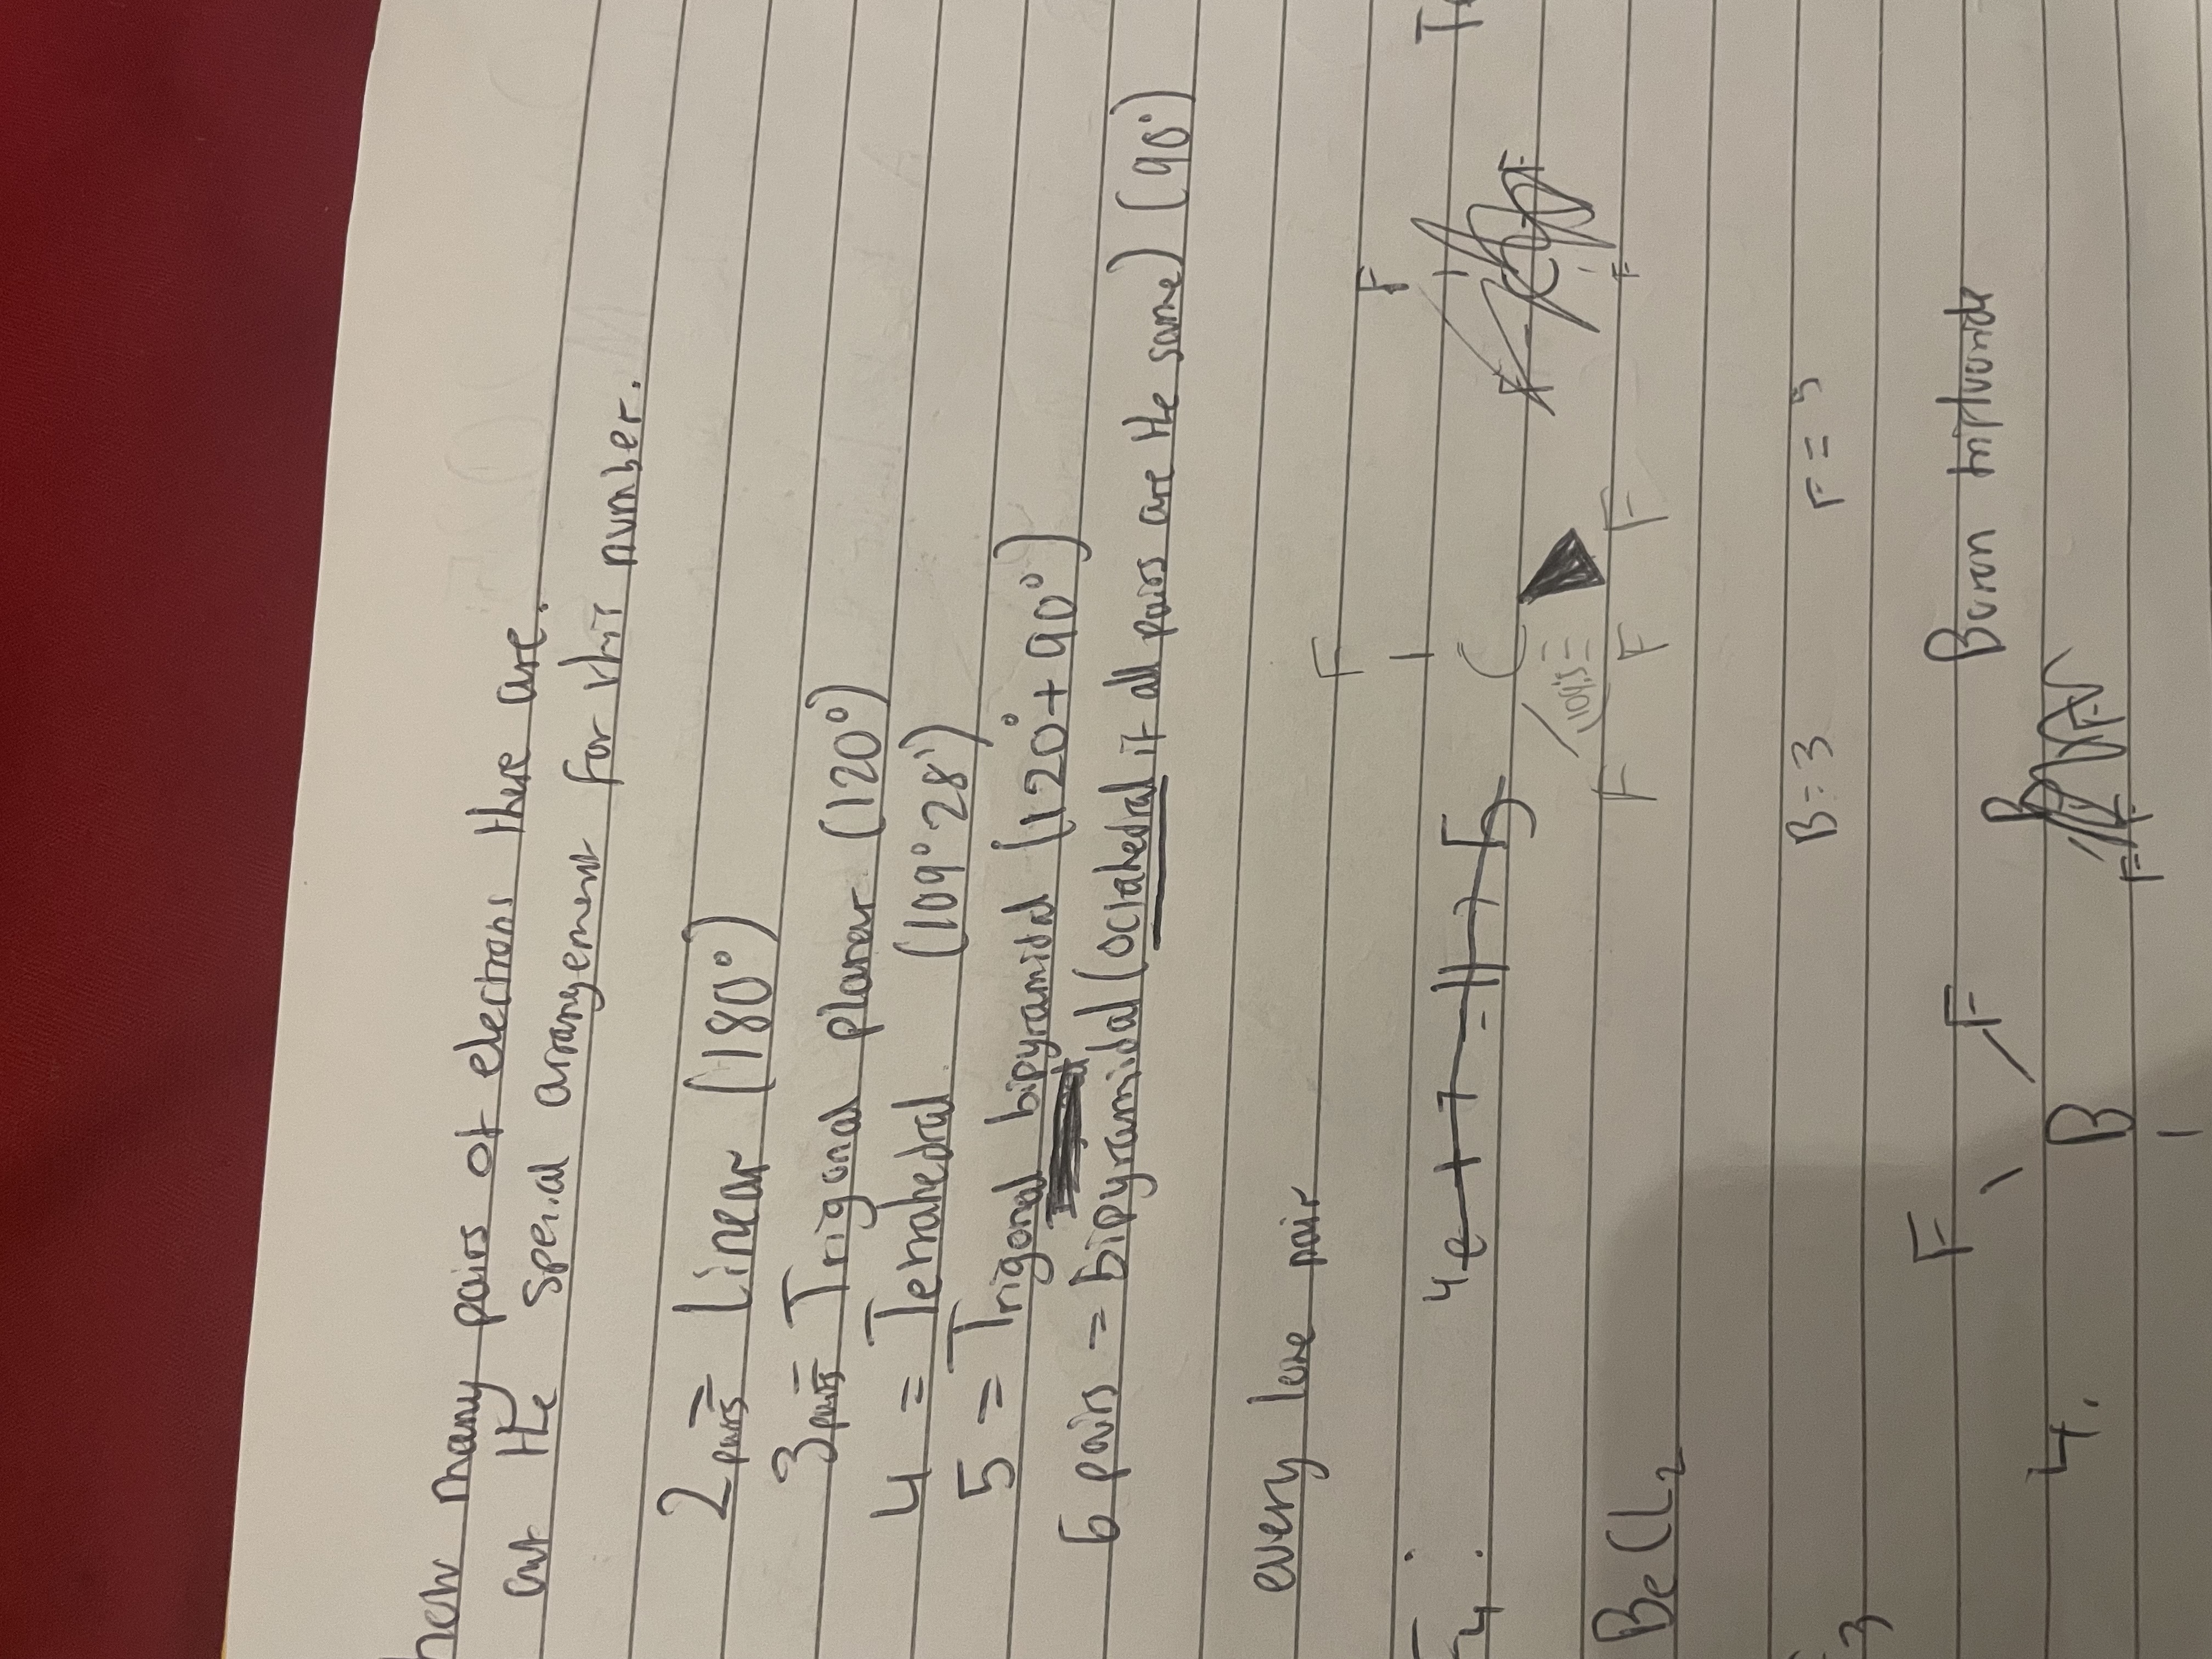 how many pairs of electrons there are.
out the special arrangement for this number.
2 pairs = Linear (180°)
3 pairs = Trigonal planar (120°)
4 = Tetrahedral (109° 28')
5 = Trigonal bipyramidal (120° + 90°)
6 pairs = bipyramidal (octahedral if all pairs are the same) (90°)
every lone pair
F F
4 C F
109.5
F F F F
BeCl2
B = 3 F =
3
F F Boron trifluoride
4. B B
F F